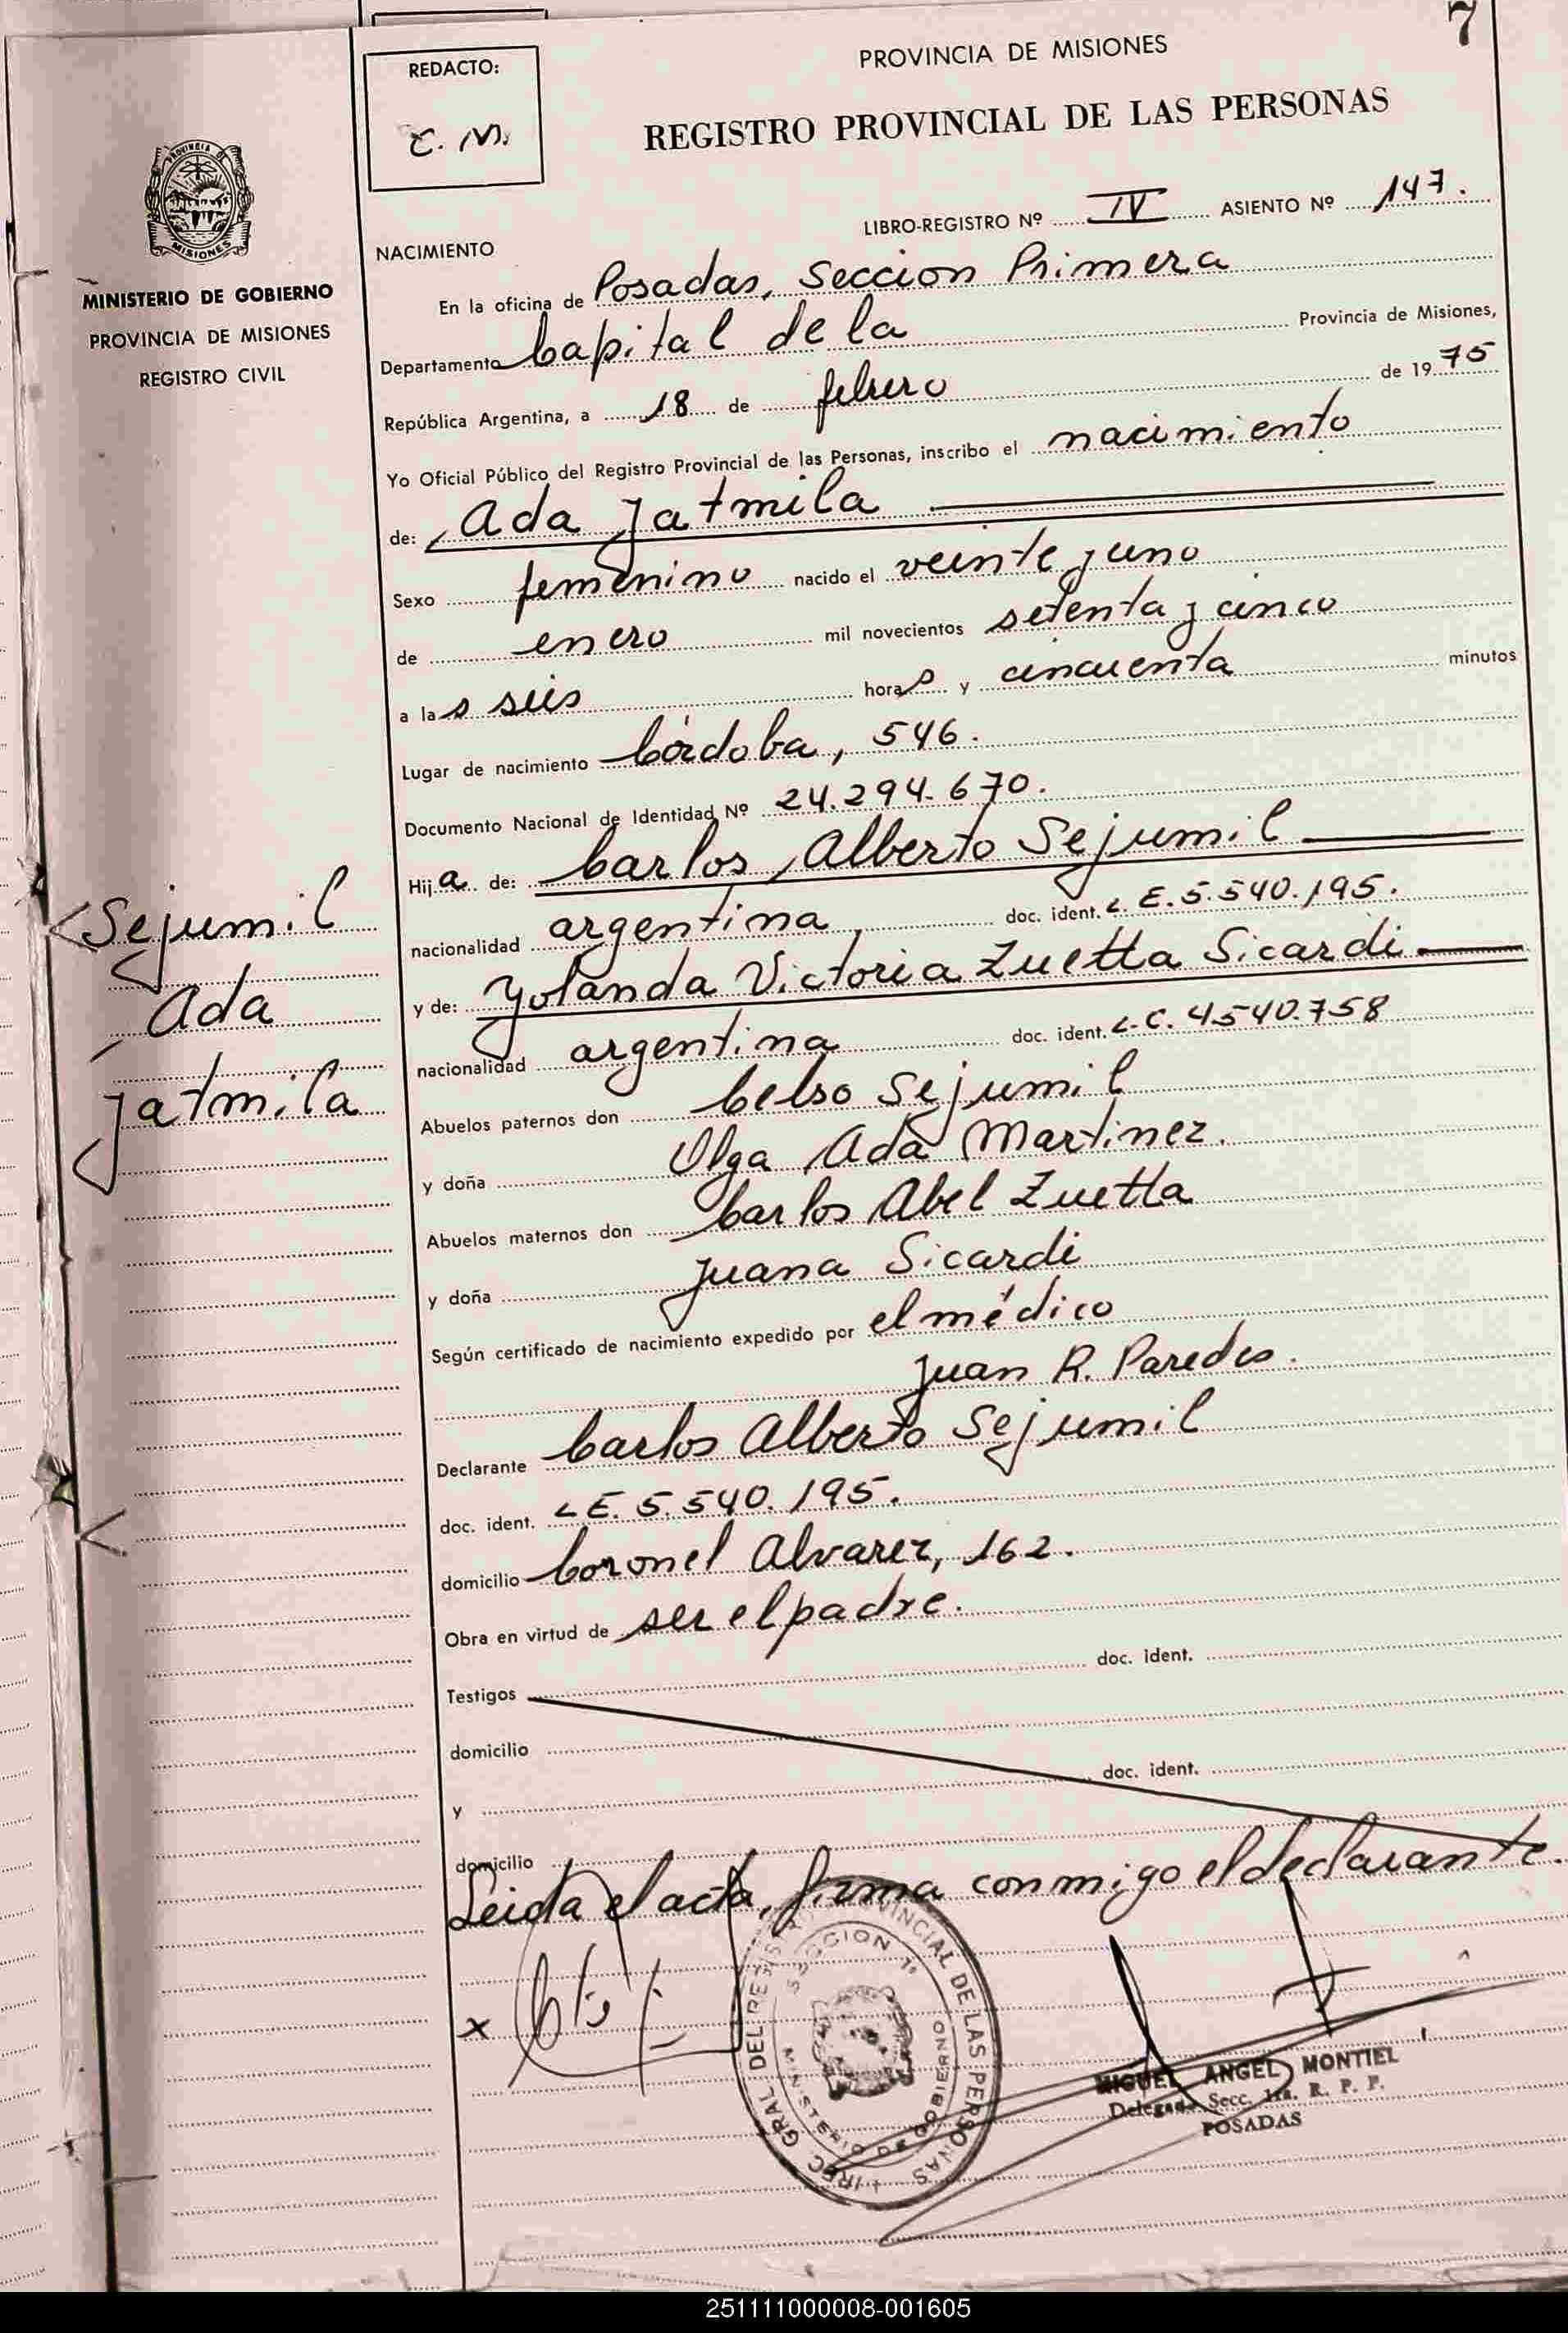 7
REDACTO:
C. M.
PROVINCIA DE MISIONES
REGISTRO PROVINCIAL DE LAS PERSONAS
PROVINCIA DE
MISIONES
MINISTERIO DE GOBIERNO
PROVINCIA DE MISIONES
REGISTRO CIVIL
LIBRO-REGISTRO Nº IV ASIENTO Nº 147.
NACIMIENTO
En la oficina de Posadas, Seccion Primera
Departamento Capital de la Provincia de Misiones,
República Argentina, a 18 de febrero de 1975
Yo Oficial Público del Registro Provincial de las Personas, inscribo el nacimiento
de: Ada Jatmila
Sexo femenino nacido el veinte y uno
de enero mil novecientos setenta y cinco
a las seis horas y cincuenta minutos
Lugar de nacimiento Córdoba, 546.
Documento Nacional de Identidad Nº 24.294.670.
Hija de: Carlos Alberto Sejumil
nacionalidad argentina doc. ident. L.E. 5.540.195.
y de: Yolanda Victoria Zuetta Sicardi
nacionalidad argentina doc. ident. L.C. 4540.758
Abuelos paternos don Celso Sejumil
y doña Olga Ada Martinez.
Abuelos maternos don Carlos Abel Zuetta
y doña Juana Sicardi
Según certificado de nacimiento expedido por el médico
Juan R. Paredes.
Declarante Carlos Alberto Sejumil
doc. ident. L.E. 5.540.195.
domicilio Coronel Alvarez, 162.
Obra en virtud de ser el padre.
Testigos doc. ident.
domicilio
y doc. ident.
domicilio
Leida el acta, firma conmigo el declarante.
Sejumil
Ada
Jatmila
x
DIREC. GRAL. DEL REGISTRO PROVINCIAL DE LAS PERSONAS
SECCION 1ª
MINISTERIO DE GOBIERNO
MIGUEL ANGEL MONTIEL
Delegado Secc. 1ra. R. P. P.
POSADAS
251111000008-001605